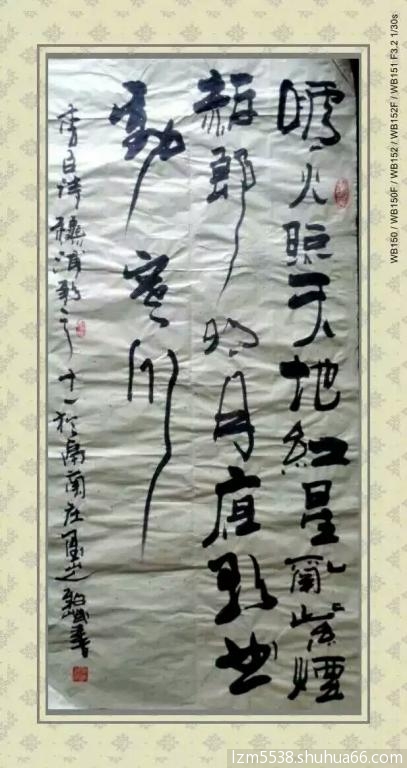 爐火照天地紅星亂紫煙
赧郎明月夜歌曲
動寒川
李白詩秋浦歌之十一於
WB150 / WB150F / WB152 / WB152F / WB151 F3.2 1/30s
lzm5538.shuhua66.com